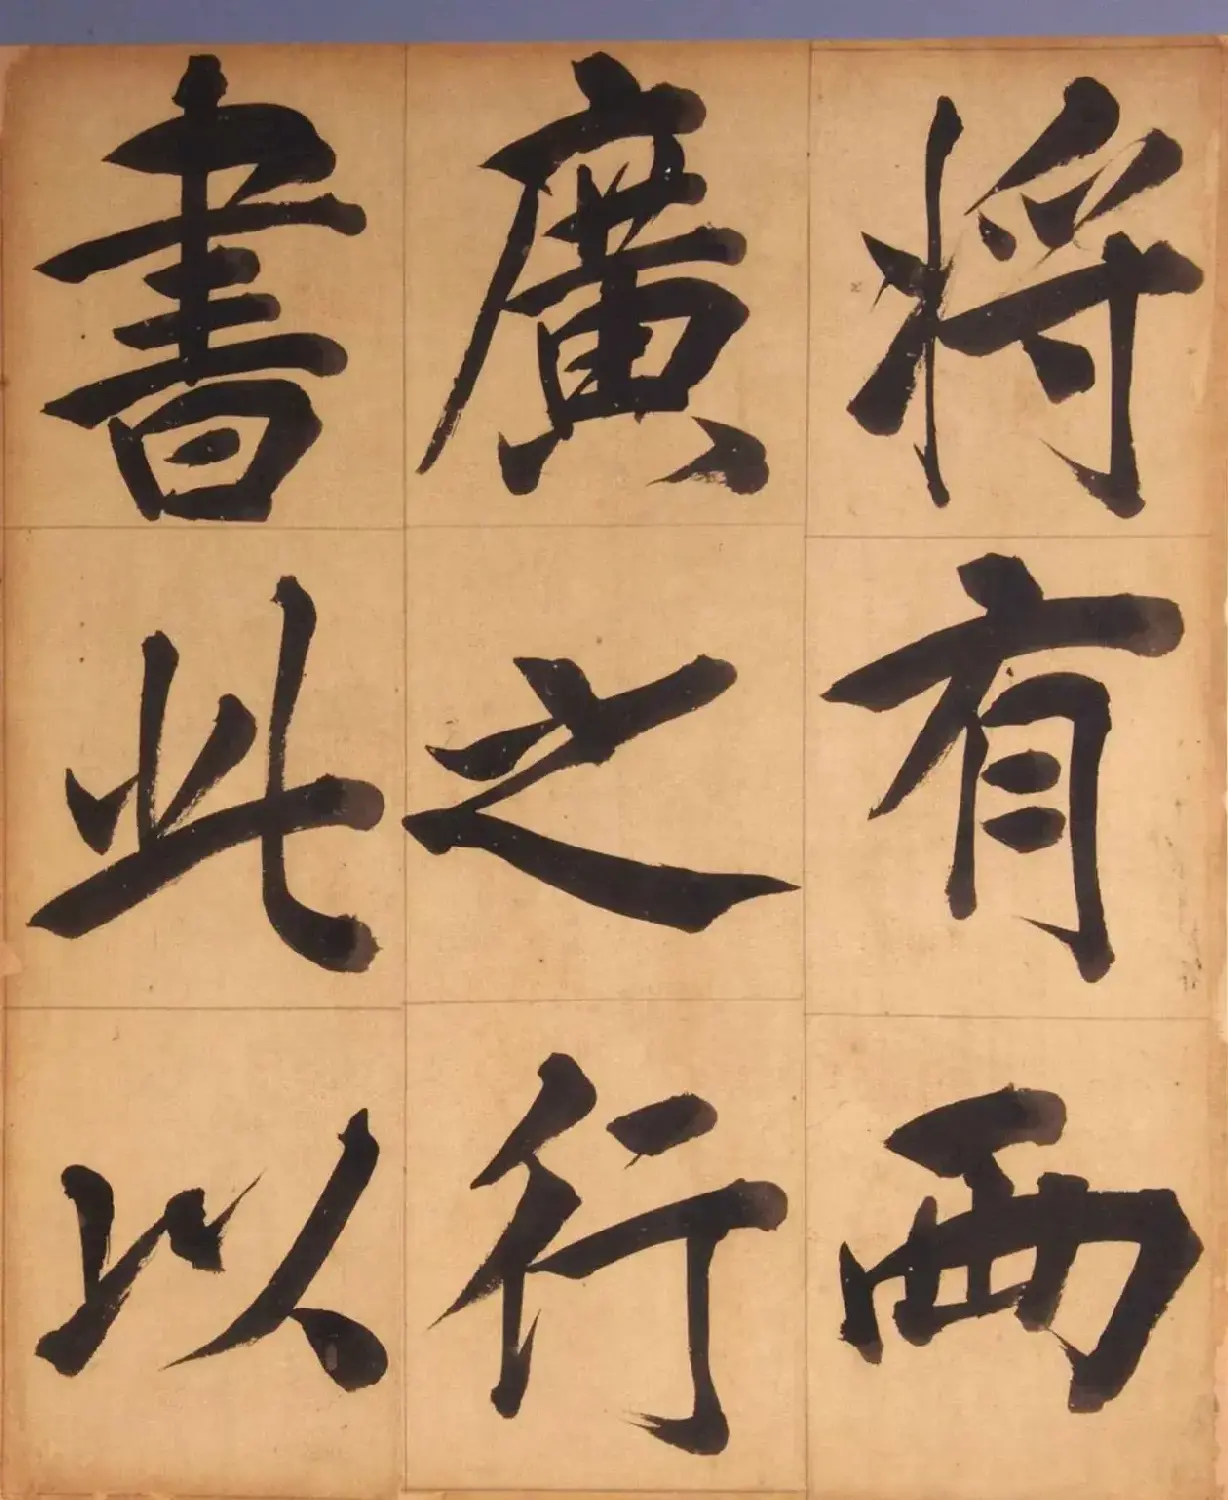 將有西
廣之行
書此以